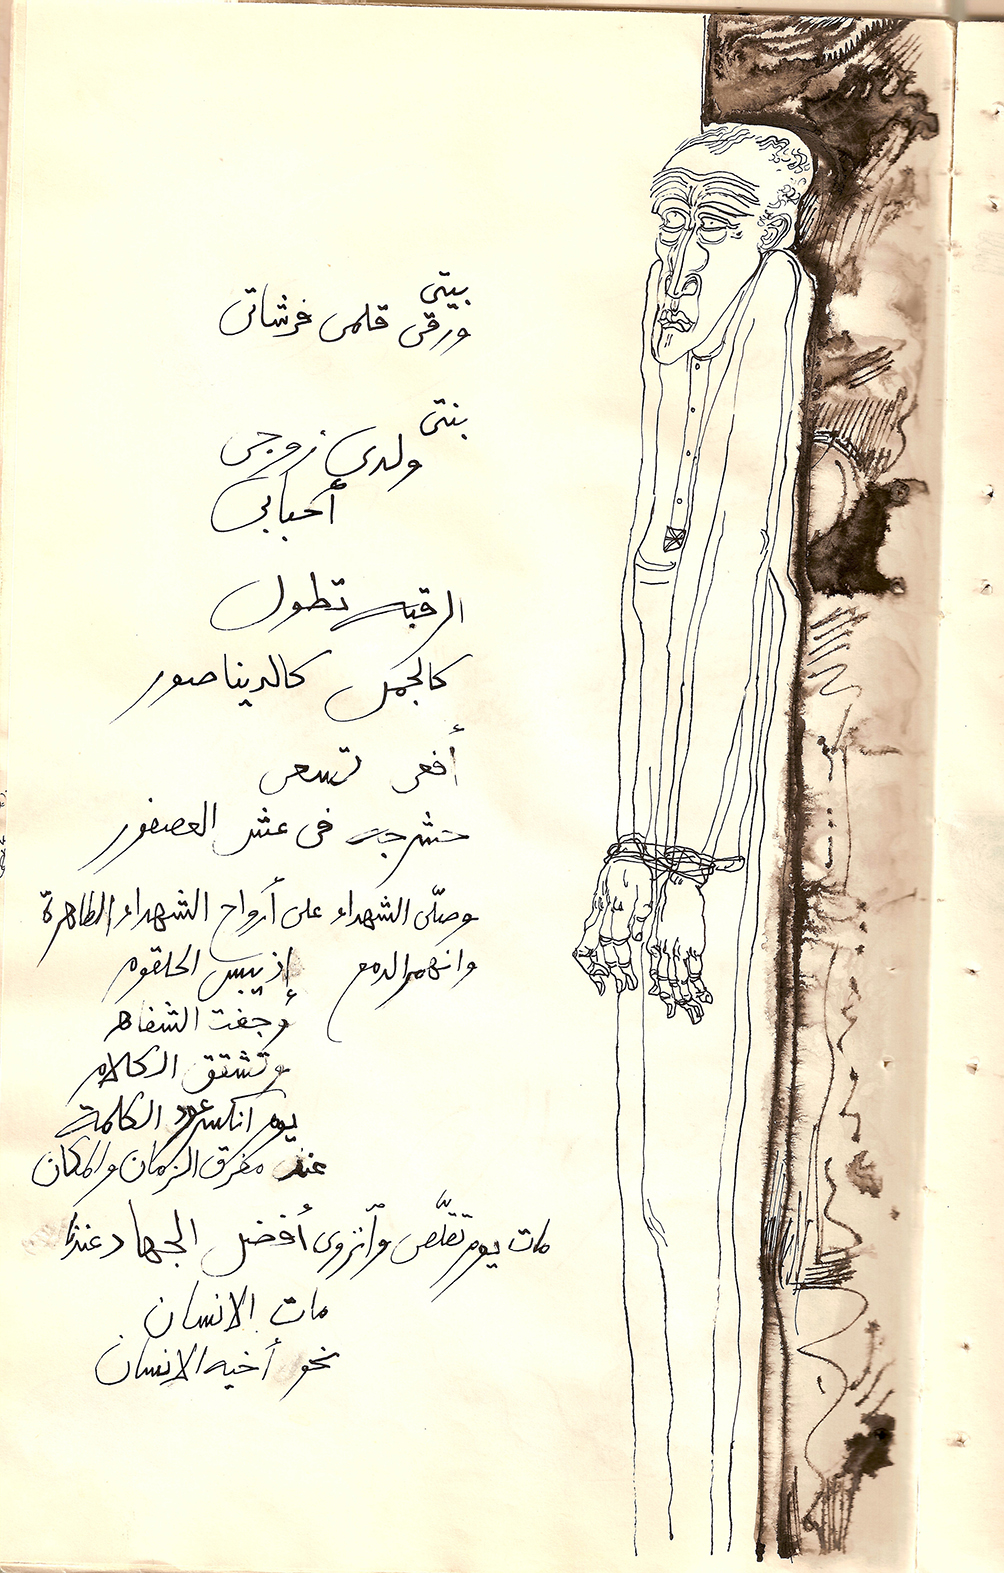 بيتى
ورقى قلمى فرشاتى
بنتى
ولدى زوجى
أحبابى
الرقبه تطول
كالجمل كالديناصور
أفعى تسعى
حشرجه فى عش العصفور
وصلّى الشهداء على أرواح الشهداء الطاهرة
وانهمر الدمع إذ يبس الحلقوم
وجفت الشفاه
وتشقق الكلام
يوم انكسر عود الكلمة
عند مفرق الزمان والمكان
مات يوم تقلّص وانزوى أفضل الجهاد عندنا
مات الانسان
نحو أخيه الانسان